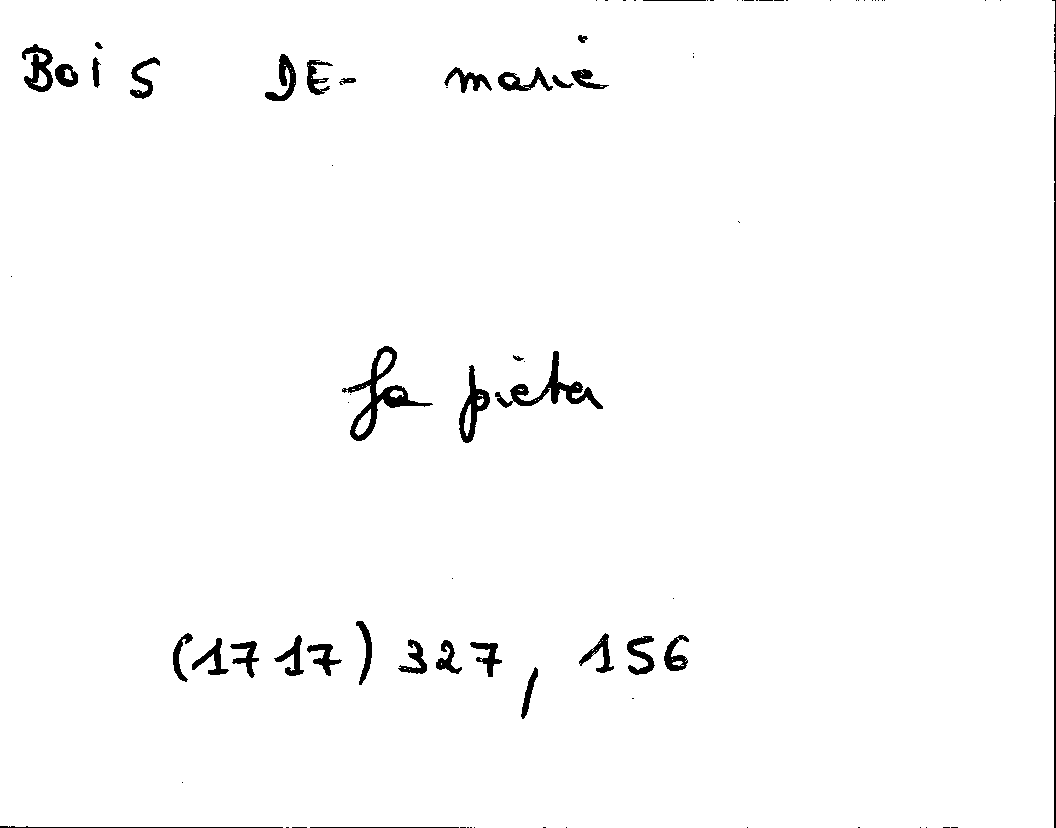 Bois DE- marie
La pieta
(1717) 327, 156